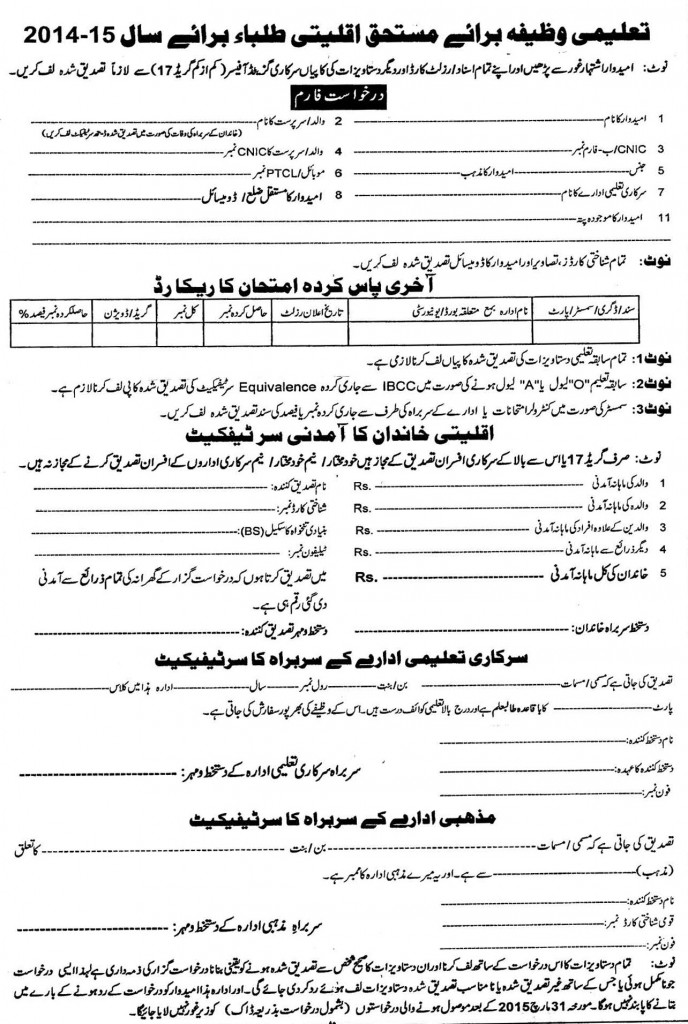 تعلیمی وظیفہ برائے مستحق اقلیتی طلباء برائے سال 15-2014
نوٹ: امیدوار اشتہار غور سے پڑھیں اور اپنے تمام اسناد/رزلٹ کارڈ اور دیگر دستاویزات کی کاپیاں سرکاری گزیٹڈ آفیسر (کم از کم گریڈ 17) سے لازماً تصدیق شدہ لف کریں۔
درخواست فارم
1 امیدوار کا نام 2 والد/سرپرست کا نام
(خاندان کے سربراہ کی وفات کی صورت میں تصدیق شدہ ڈیتھ سرٹیفکیٹ لف کریں)
3 CNIC/ب-فارم نمبر 4 والد/سرپرست کا CNIC نمبر
5 جنس امیدوار کا مذہب 6 موبائل/PTCL نمبر
7 سرکاری تعلیمی ادارے کا نام 8 امیدوار کا مستقل ضلع/ڈومیسائل
11 امیدوار کا موجودہ پتہ
نوٹ: تمام شناختی کارڈز، تصاویر اور امیدوار کا ڈومیسائل تصدیق شدہ لف کریں۔
آخری پاس کردہ امتحان کا ریکارڈ
سند/ڈگری/سمسٹر/پارٹ نام ادارہ بمع متعلقہ بورڈ/یونیورسٹی تاریخ اعلان رزلٹ حاصل کردہ نمبر کل نمبر گریڈ/ڈویژن حاصلکردہ نمبر فیصد %
نوٹ1: تمام سابقہ تعلیمی دستاویزات کی تصدیق شدہ کاپیاں لف کرنا لازمی ہے۔
نوٹ2: سابقہ تعلیم "O" لیول یا "A" لیول ہونے کی صورت میں IBCC سے جاری کردہ Equivalence سرٹیفکیٹ کی تصدیق شدہ کاپی لف کرنا لازم ہے۔
نوٹ3: سمسٹر کی صورت میں کنٹرولر امتحانات یا ادارے کے سربراہ کی طرف سے جاری کردہ نمبر یا فیصد کی سند تصدیق شدہ لف کریں۔
اقلیتی خاندان کا آمدنی سرٹیفکیٹ
نوٹ: صرف گریڈ 17 یا اس سے بالا کے سرکاری افسران تصدیق کے مجاز ہیں خود مختار/نیم خود مختار/نیم سرکاری اداروں کے افسران تصدیق کرنے کے مجاز نہ ہیں۔
1 والد کی ماہانہ آمدنی Rs. نام تصدیق کنندہ:
2 والدہ کی ماہانہ آمدنی Rs. شناختی کارڈ نمبر:
3 والدین کے علاوہ افراد کی ماہانہ آمدنی Rs. بنیادی تنخواہ کا سکیل (BS):
4 دیگر ذرائع سے ماہانہ آمدنی Rs. ٹیلیفون نمبر:
5 خاندان کی کل ماہانہ آمدنی Rs. میں تصدیق کرتا ہوں کہ درخواست گزار کے گھرانہ کی تمام ذرائع سے آمدنی
دی گئی رقم ہی ہے۔
دستخط سربراہ خاندان: دستخط و مہر تصدیق کنندہ:
سرکاری تعلیمی ادارے کے سربراہ کا سرٹیفیکیٹ
تصدیق کی جاتی ہے کہ مسمی/مسمات بن/بنت رول نمبر سال ادارہ ہذا میں کلاس
پارٹ کا باقاعدہ طالبعلم ہے اور درج بالا تعلیمی کوائف درست ہیں۔ اس کے وظیفے کی بھرپور سفارش کی جاتی ہے۔
نام دستخط کنندہ:
دستخط کنندہ کا عہدہ: سربراہ سرکاری تعلیمی ادارہ کے دستخط و مہر:
فون نمبر:
مذہبی ادارے کے سربراہ کا سرٹیفیکیٹ
تصدیق کی جاتی ہے کہ مسمی/مسمات بن/بنت کا تعلق
(مذہب) سے ہے۔ اور یہ میرے مذہبی ادارہ کا ممبر ہے۔
نام دستخط کنندہ:
قومی شناختی کارڈ نمبر: سربراہ مذہبی ادارہ کے دستخط و مہر:
فون نمبر:
نوٹ: تمام دستاویزات کا اس درخواست کے ساتھ لف کرنا اور ان دستاویزات کا صحیح شخص سے تصدیق شدہ ہونے کو یقینی بنانا درخواست گزار کی ذمہ داری ہے لہذا ایسی درخواست
جو نامکمل ہوئی یا جس کے ساتھ غیر تصدیق شدہ یا نامناسب تصدیق شدہ دستاویزات لف ہوئے رد کر دی جائے گی۔ اور ادارہ ہذا امیدوار کو درخواست کے رد ہونے کے بارے میں
بتانے کا پابند نہیں ہوگا۔ مورخہ 31 مارچ 2015 کے بعد موصول ہونے والی درخواستوں (بشمول درخواست بذریعہ ڈاک) کو زیر غور نہیں لایا جائیگا۔